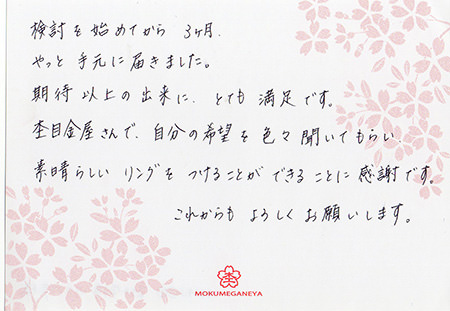 検討を始めてから 3ヶ月、
やっと手元に届きました。
期待以上の出来に、とても満足です。
杢目金屋さんで、自分の希望を色々聞いてもらい、
素晴らしいリングをつけることができることに感謝です。
これからもよろしくお願いします。
MOKUMEGANEYA